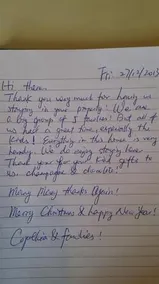 Fri 27/12/2013
Hi there,
Thank you very much for having us
staying in your property! We are
a big group of 3 families! But all of
us had a great time, especially the
kids! Everything in this house is very
handy. We do enjoy staying here.
Thank you for your kind gifts to
us: champagne & chocolate!
Many Many thanks again!
Marry Christmas & happy New Year!
Cynthia & families!